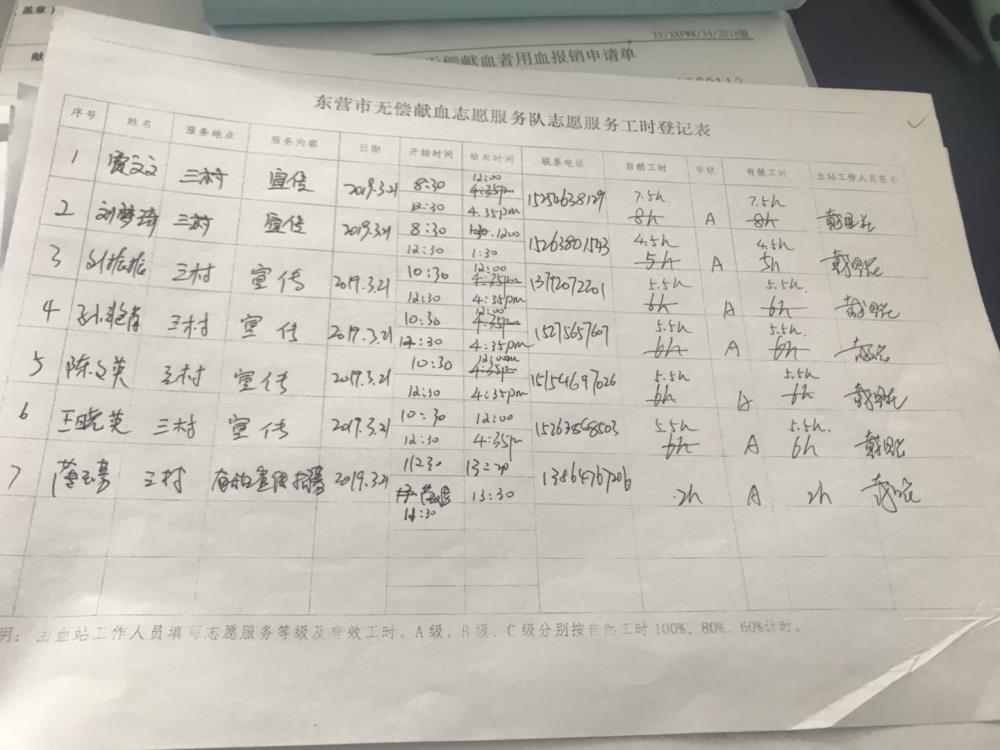 盖章）
献
TY/XXPWK/34/2018版
无偿献血者用血报销申请单
东营市无偿献血志愿服务队志愿服务工时登记表
序号 姓名 服务地点 服务内容 日期 开始时间 结束时间 联系电话 自然工时 等级 有效工时 血站工作人员签名
1 贾文文 三村 宣传 2019.3.21 8:30 12:00 15250638129 7.5h 7.5h
12:30 4:35pm 8h A 8h
2 刘梦琦 三村 宣传 2019.3.21 8:30 12:00 15263801543 4.5h 4.5h
12:30 1:30 5h A 5h
3 三村 宣传 2019.3.21 10:30 12:00 13792072201 5.5h 5.5h.
12:30 4:35pm 6h A 6h
4 三村 宣传 2019.3.21 10:30 12:00 15275657607 5.5h 5.5h.
12:30 4:35pm 6h A 6h
5 陈文英 三村 宣传 2019.3.21 10:30 12:00 15154697026 5.5h 5.5h
12:30 4:35pm 6h A 6h
6 王晓英 三村 宣传 2019.3.21 10:30 12:00 15263868503 5.5h 5.5h.
12:30 4:35pm 6h A 6h
7 三村 2019.3.21 11:30 13:20 13864767206
13:30 2h A 2h
明：由血站工作人员填写志愿服务等级及有效工时。A级、B级、C级分别按自然工时100%、80%、60%计时。